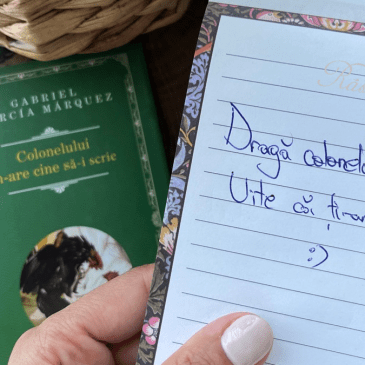 GABRIEL
RCÍA MÁRQUEZ
Colonelului
-are cine să-i scrie
Dragă colonel
Uite că-i
:)